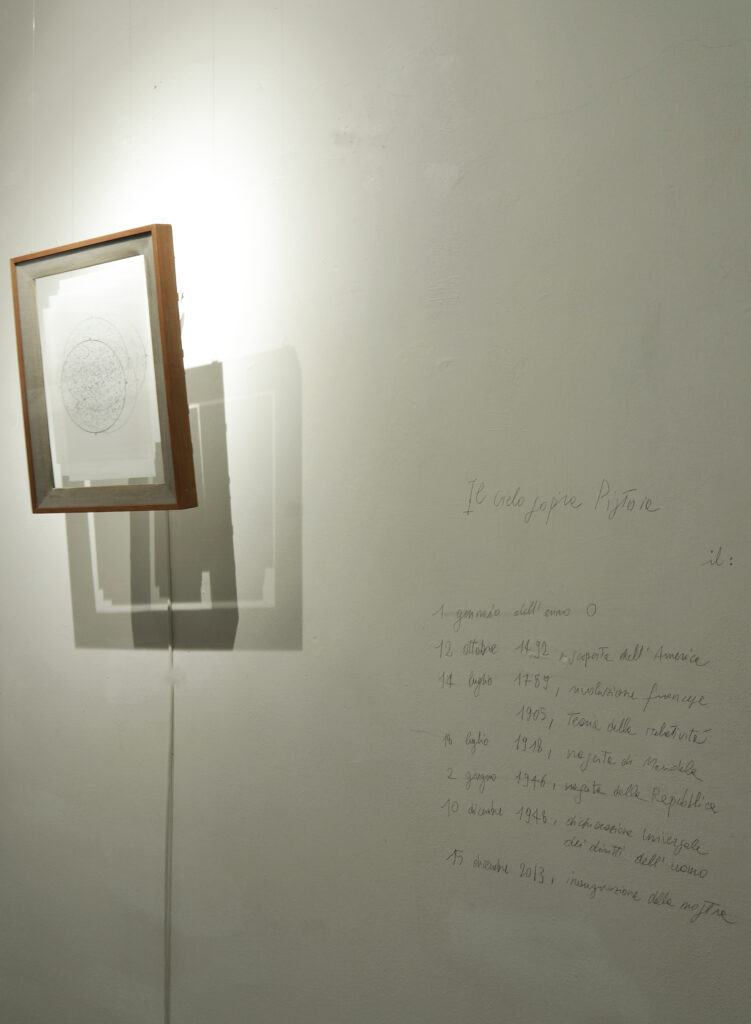 Il cielo sopra Pistoia
il:
1 gennaio dell'anno 0
12 ottobre 1492, scoperta dell'America
14 luglio 1789, rivoluzione francese
1905, Teoria della relatività
18 luglio 1918, nascita di Mandela
2 giugno 1946, nascita della Repubblica
10 dicembre 1948, dichiarazione universale
dei diritti dell'uomo
15 dicembre 2013, inaugurazione della mostra